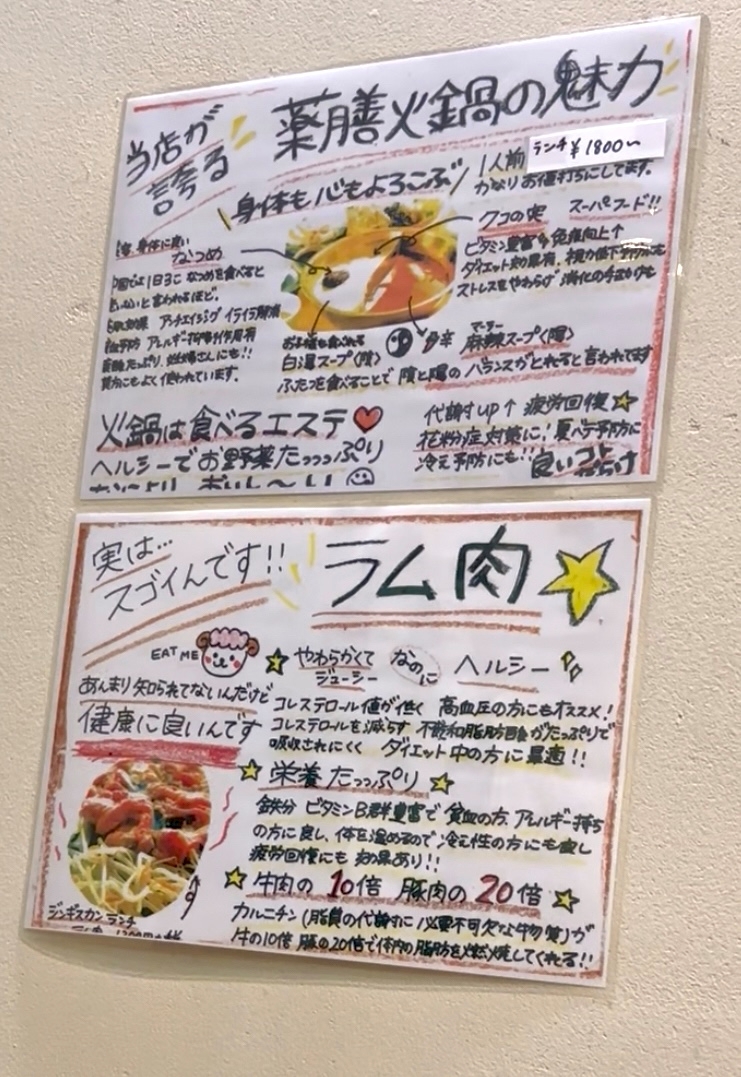 当店が
誇る
薬膳火鍋の魅力
1人前 ランチ ¥1800〜
かなりお値打ちにしてます。
身体も心もよろこぶ
クコの実 スーパーフード!!
ビタミン豊富 免疫向上↑
ダイエット効果有、視力低下
ストレスをやわらげ 消化の手助けも
身体に良い
なつめ
では1日3こ なつめを食べると
ないと言われるほど。
効果 アンチエイジング イライラ解消
予防 アレルギー抑制作用有
たっぷり、妊婦さんにも!!
にもよく使われています。
お子様も食べれる
白湯スープ〈陰〉
辛
マーラー
麻辣スープ〈陽〉
ふたつを食べることで 陰と陽の バランスがとれると言われてます
火鍋は食べるエステ
ヘルシーでお野菜たっっっぷり
おいし〜い
代謝up↑ 疲労回復
花粉症対策に! 夏バテ予防に
冷え予防にも!! 良いコト
だらけ
実は…
スゴイんです!!
ラム肉
EAT ME
あんまり知られてないんだけど
健康に良いんです
やわらかくて
ジューシー
なのに
ヘルシー
コレステロール値が低く 高血圧の方にもオススメ!
コレステロールを減らす 不飽和脂肪酸がたっぷりで
吸収されにくく ダイエット中の方に最適!!
栄養たっっぷり
鉄分 ビタミンB群豊富で 貧血の方、アレルギー持ち
の方に良し、体を温めるので冷え性の方にも良し
疲労回復にも 効果あり!!
牛肉の10倍 豚肉の20倍
カルニチン(脂質の代謝に必要不可欠な物質)が
牛の10倍 豚の20倍で体内の脂肪を燃焼してくれる!!
ジンギスカンランチ